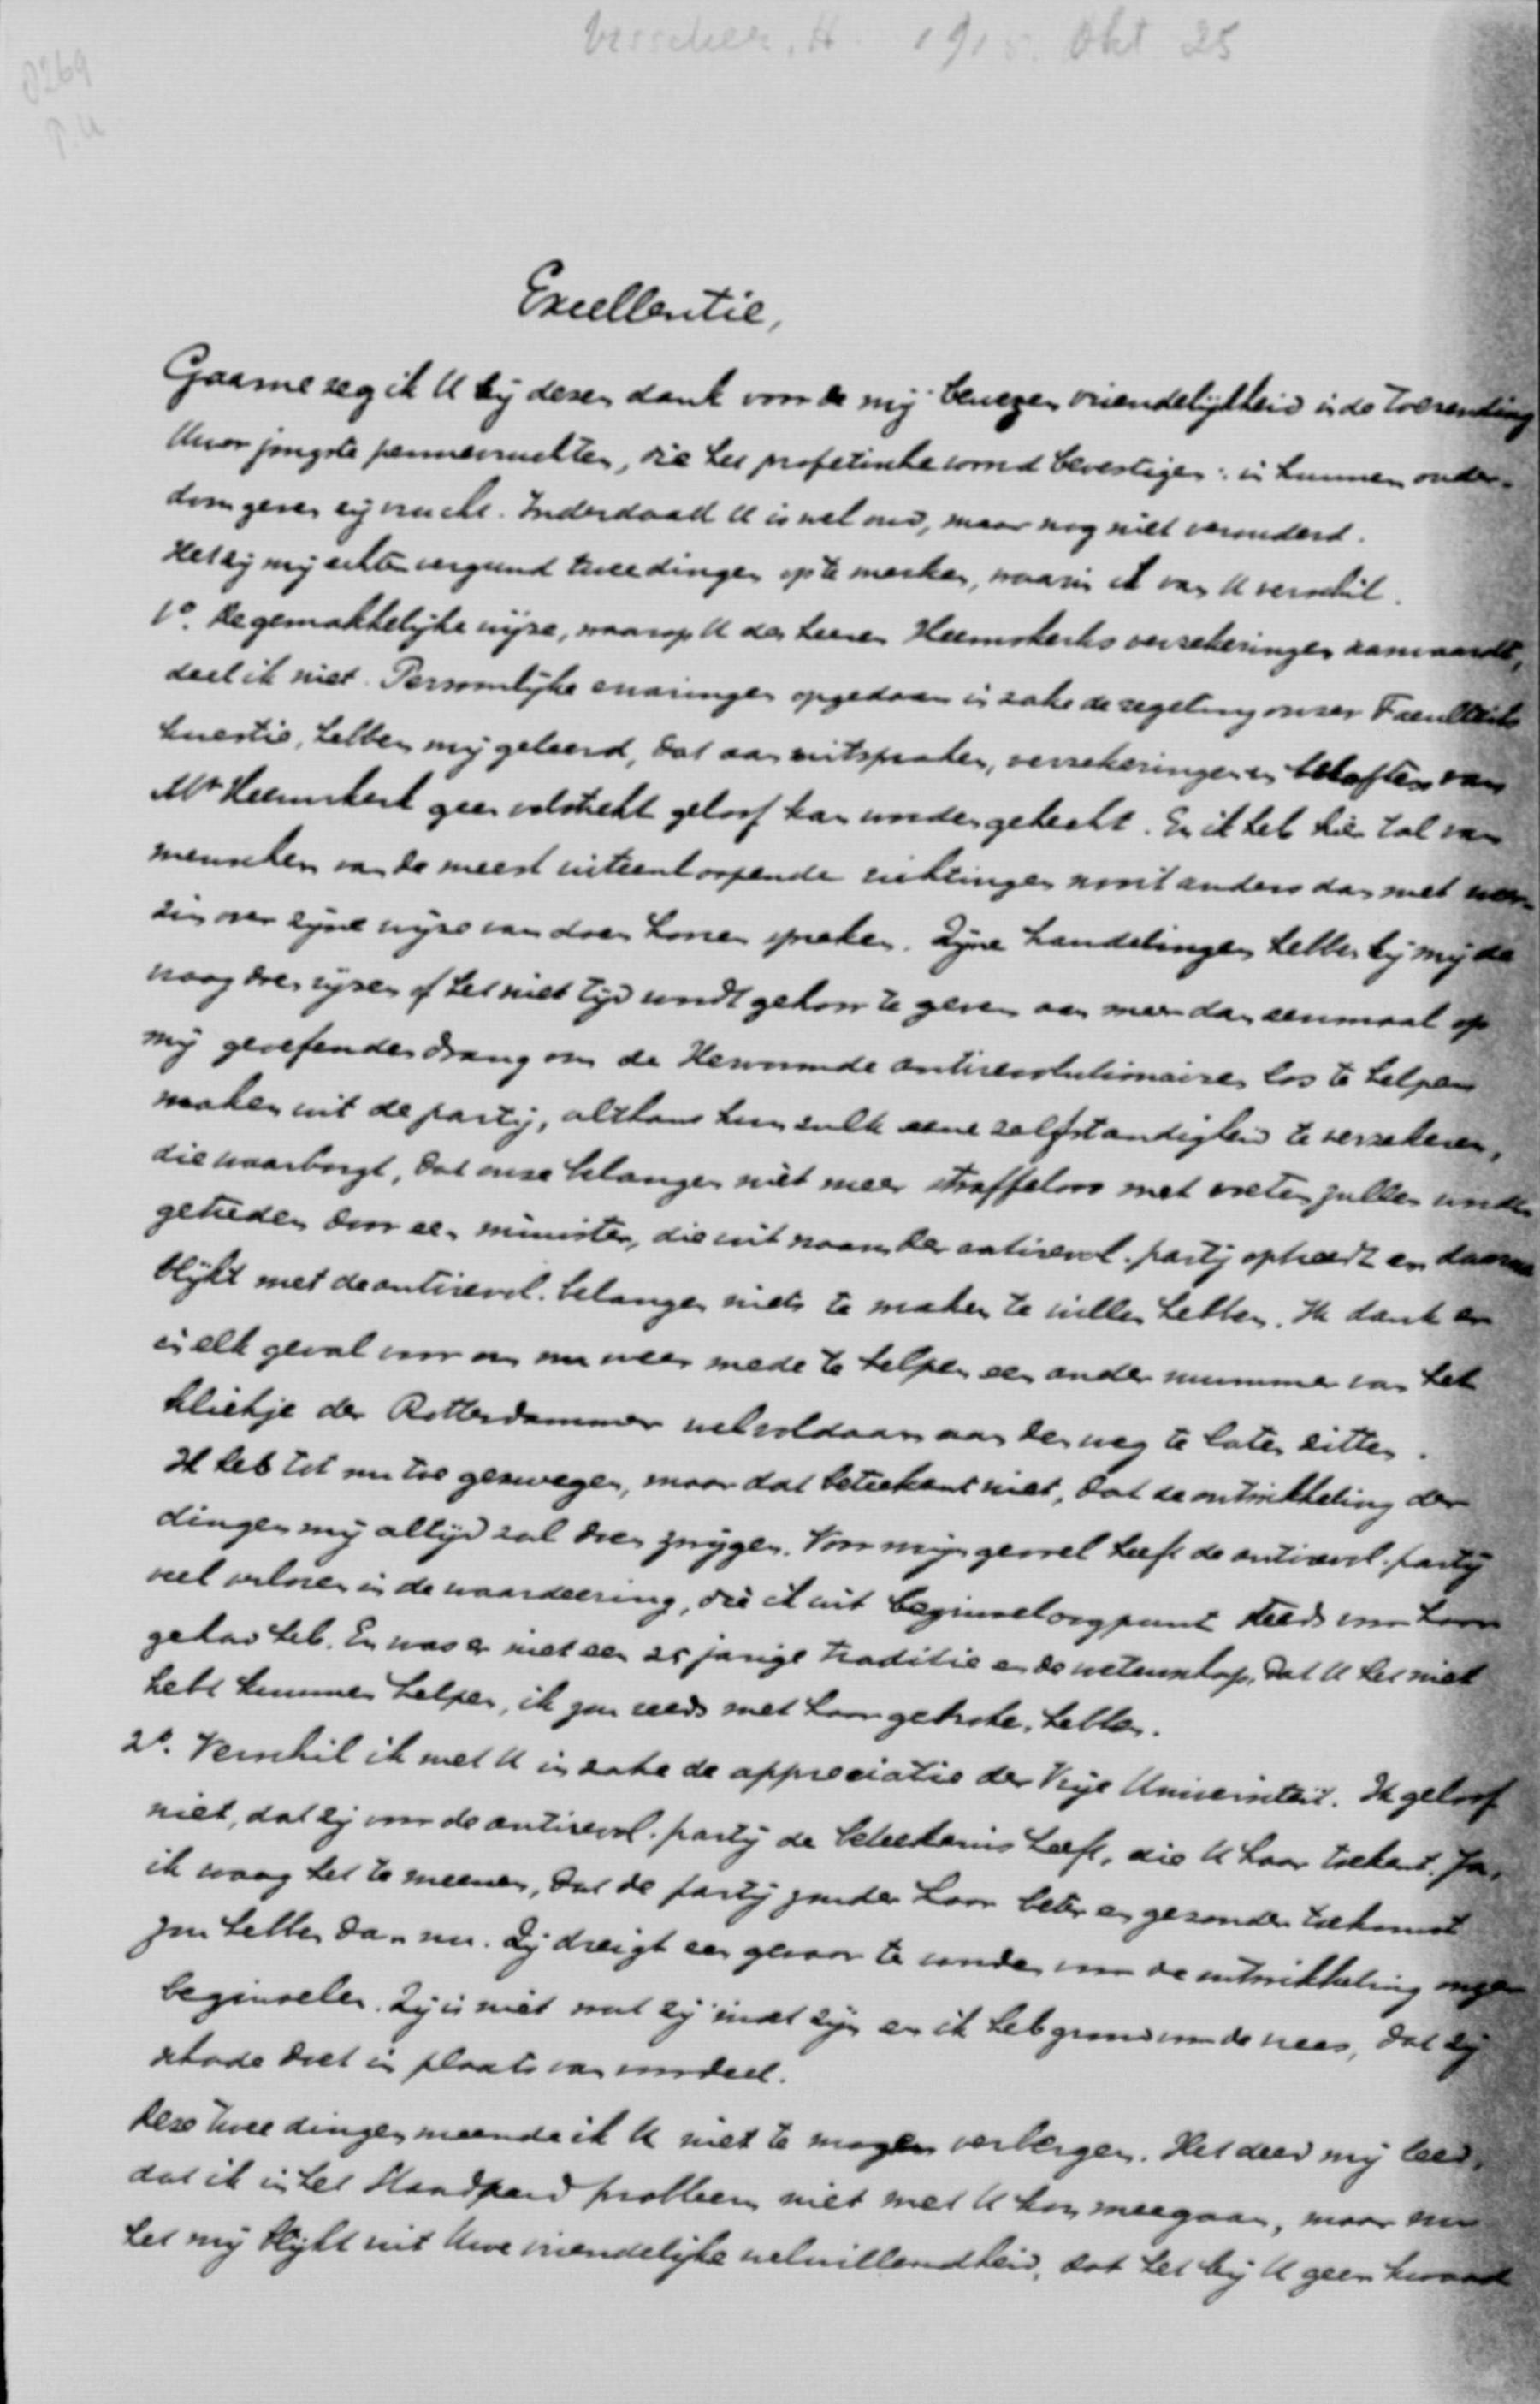 Visscher, H. 1915. Okt 25
8269
P.U
Excellentie,
Gaarne zeg ik U bij dezen dank voor de mij bewezen vriendelijkheid in de toezending
Uwer jongste pennevruchten, die het profetische woord bevestigen: in hunnen ouder-
dom geven zij vrucht. Inderdaad U is wel oud, maar nog niet verouderd.
Het zij mij echter vergund twee dingen op te merken, waarin ik van U verschil.
1o. De gemakkelijke wijze, waarop U des heeren Heemskerks verzekeringen aanvaardt,
deel ik niet. Persoonlijke ervaringen opgedaan in zake de regeling onzer Faculteits
kwestie, hebben mij geleerd, dat aan uitspraken, verzekeringen en beloften van
Mr Heemskerk geen volstrekt geloof kan worden gehecht. En ik heb hier tal van
menschen van de meest uiteenloopende richtingen nooit anders dan met weer-
zin over zijne wijze van doen hooren spreken. Zijne handelingen hebben bij mij de
vraag doen rijzen of het niet tijd wordt gehoor te geven aan meer dan eenmaal op
mij geoefenden drang om de Hervormde antirevolutionairen los te helpen
maken uit de partij, althans hun zulk eene zelfstandigheid te verzekeren,
die waarborgt, dat onze belangen niet meer straffeloos met voeten zullen worden
getreden door een minister, die uit naam der antirevol. partij optreedt en daarna
blijkt met de antirevol. belangen niets te maken te willen hebben. Ik dank er
in elk geval voor om nu weer mede te helpen een ander nummer van het
kliekje der Rotterdammer welvoldaan aan den weg te laten zitten.
Ik heb tot nu toe gezwegen, maar dat beteekent niet, dat de ontwikkeling der
dingen mij altijd zal doen zwijgen. Voor mijn gevoel heeft de antirevol. partij
veel verloren in de waardeering, die ik uit beginseloogpunt steeds voor haar
gehad heb. En was er niet een 25 jarige traditie en de wetenschap, dat U het niet
hebt kunnen helpen, ik zou reeds met haar gebroken hebben.
2o. Verschil ik met U in zake de appreciatie der Vrije Universiteit. Ik geloof
niet, dat zij voor de antirevol. partij de beteekenis heeft, die U haar toekent. Ja,
ik waag het te meenen, dat de partij zonder haar beter en gezonder toekomst
zou hebben dan nu. Zij dreigt een gevaar te worden voor de ontwikkeling onzer
beginselen. Zij is niet wat zij moet zijn en ik heb grond voor de vrees, dat zij
schade doet in plaats van voordeel.
Deze twee dingen meende ik U niet te mogen verbergen. Het deed mij leed,
dat ik in het Handpaard probleem niet met U kon meegaan, maar nu
het mij blijkt uit Uwe vriendelijke welwillendheid, dat het bij U geen kwaad